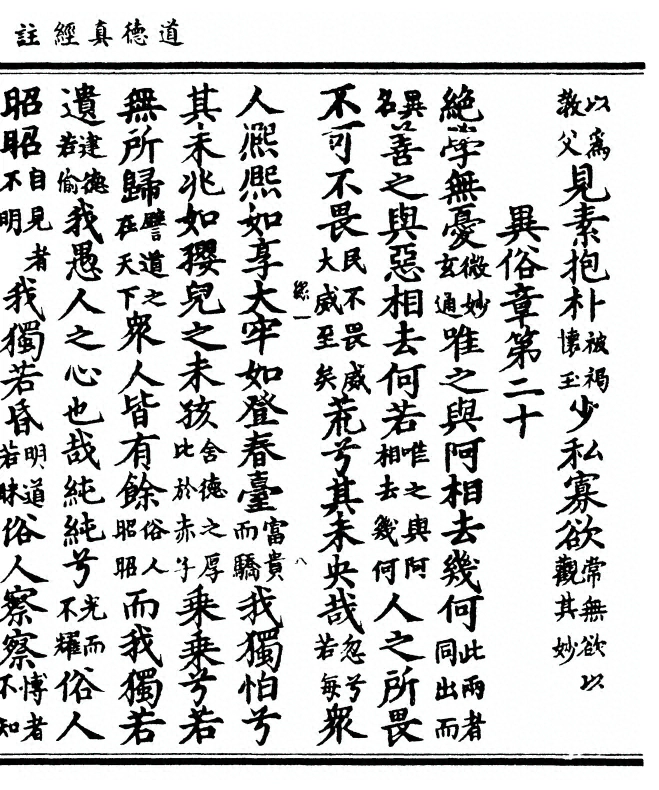 道德真經註
以爲教父見素抱朴被褐懷玉少私寡欲常無欲以觀其妙
異俗章第二十
絶學無憂微妙玄通唯之與阿相去幾何此兩者同出而
異名善之與惡相去何若唯之與阿相去幾何人之所畏
不可不畏民不畏威大威至矣荒兮其未央哉忽兮若每衆
人熈熈如享大牢如登春臺富貴而驕我獨怕兮
其未兆如㺔兒之未孩舍德之厚比於赤子乗乗兮若
無所歸譬道之在天下衆人皆有餘俗人昭昭而我獨若
遺建德若偷我愚人之心也哉純純兮光而不耀俗人
昭昭自見者不明我獨若昏明道若昧俗人察察博者不知